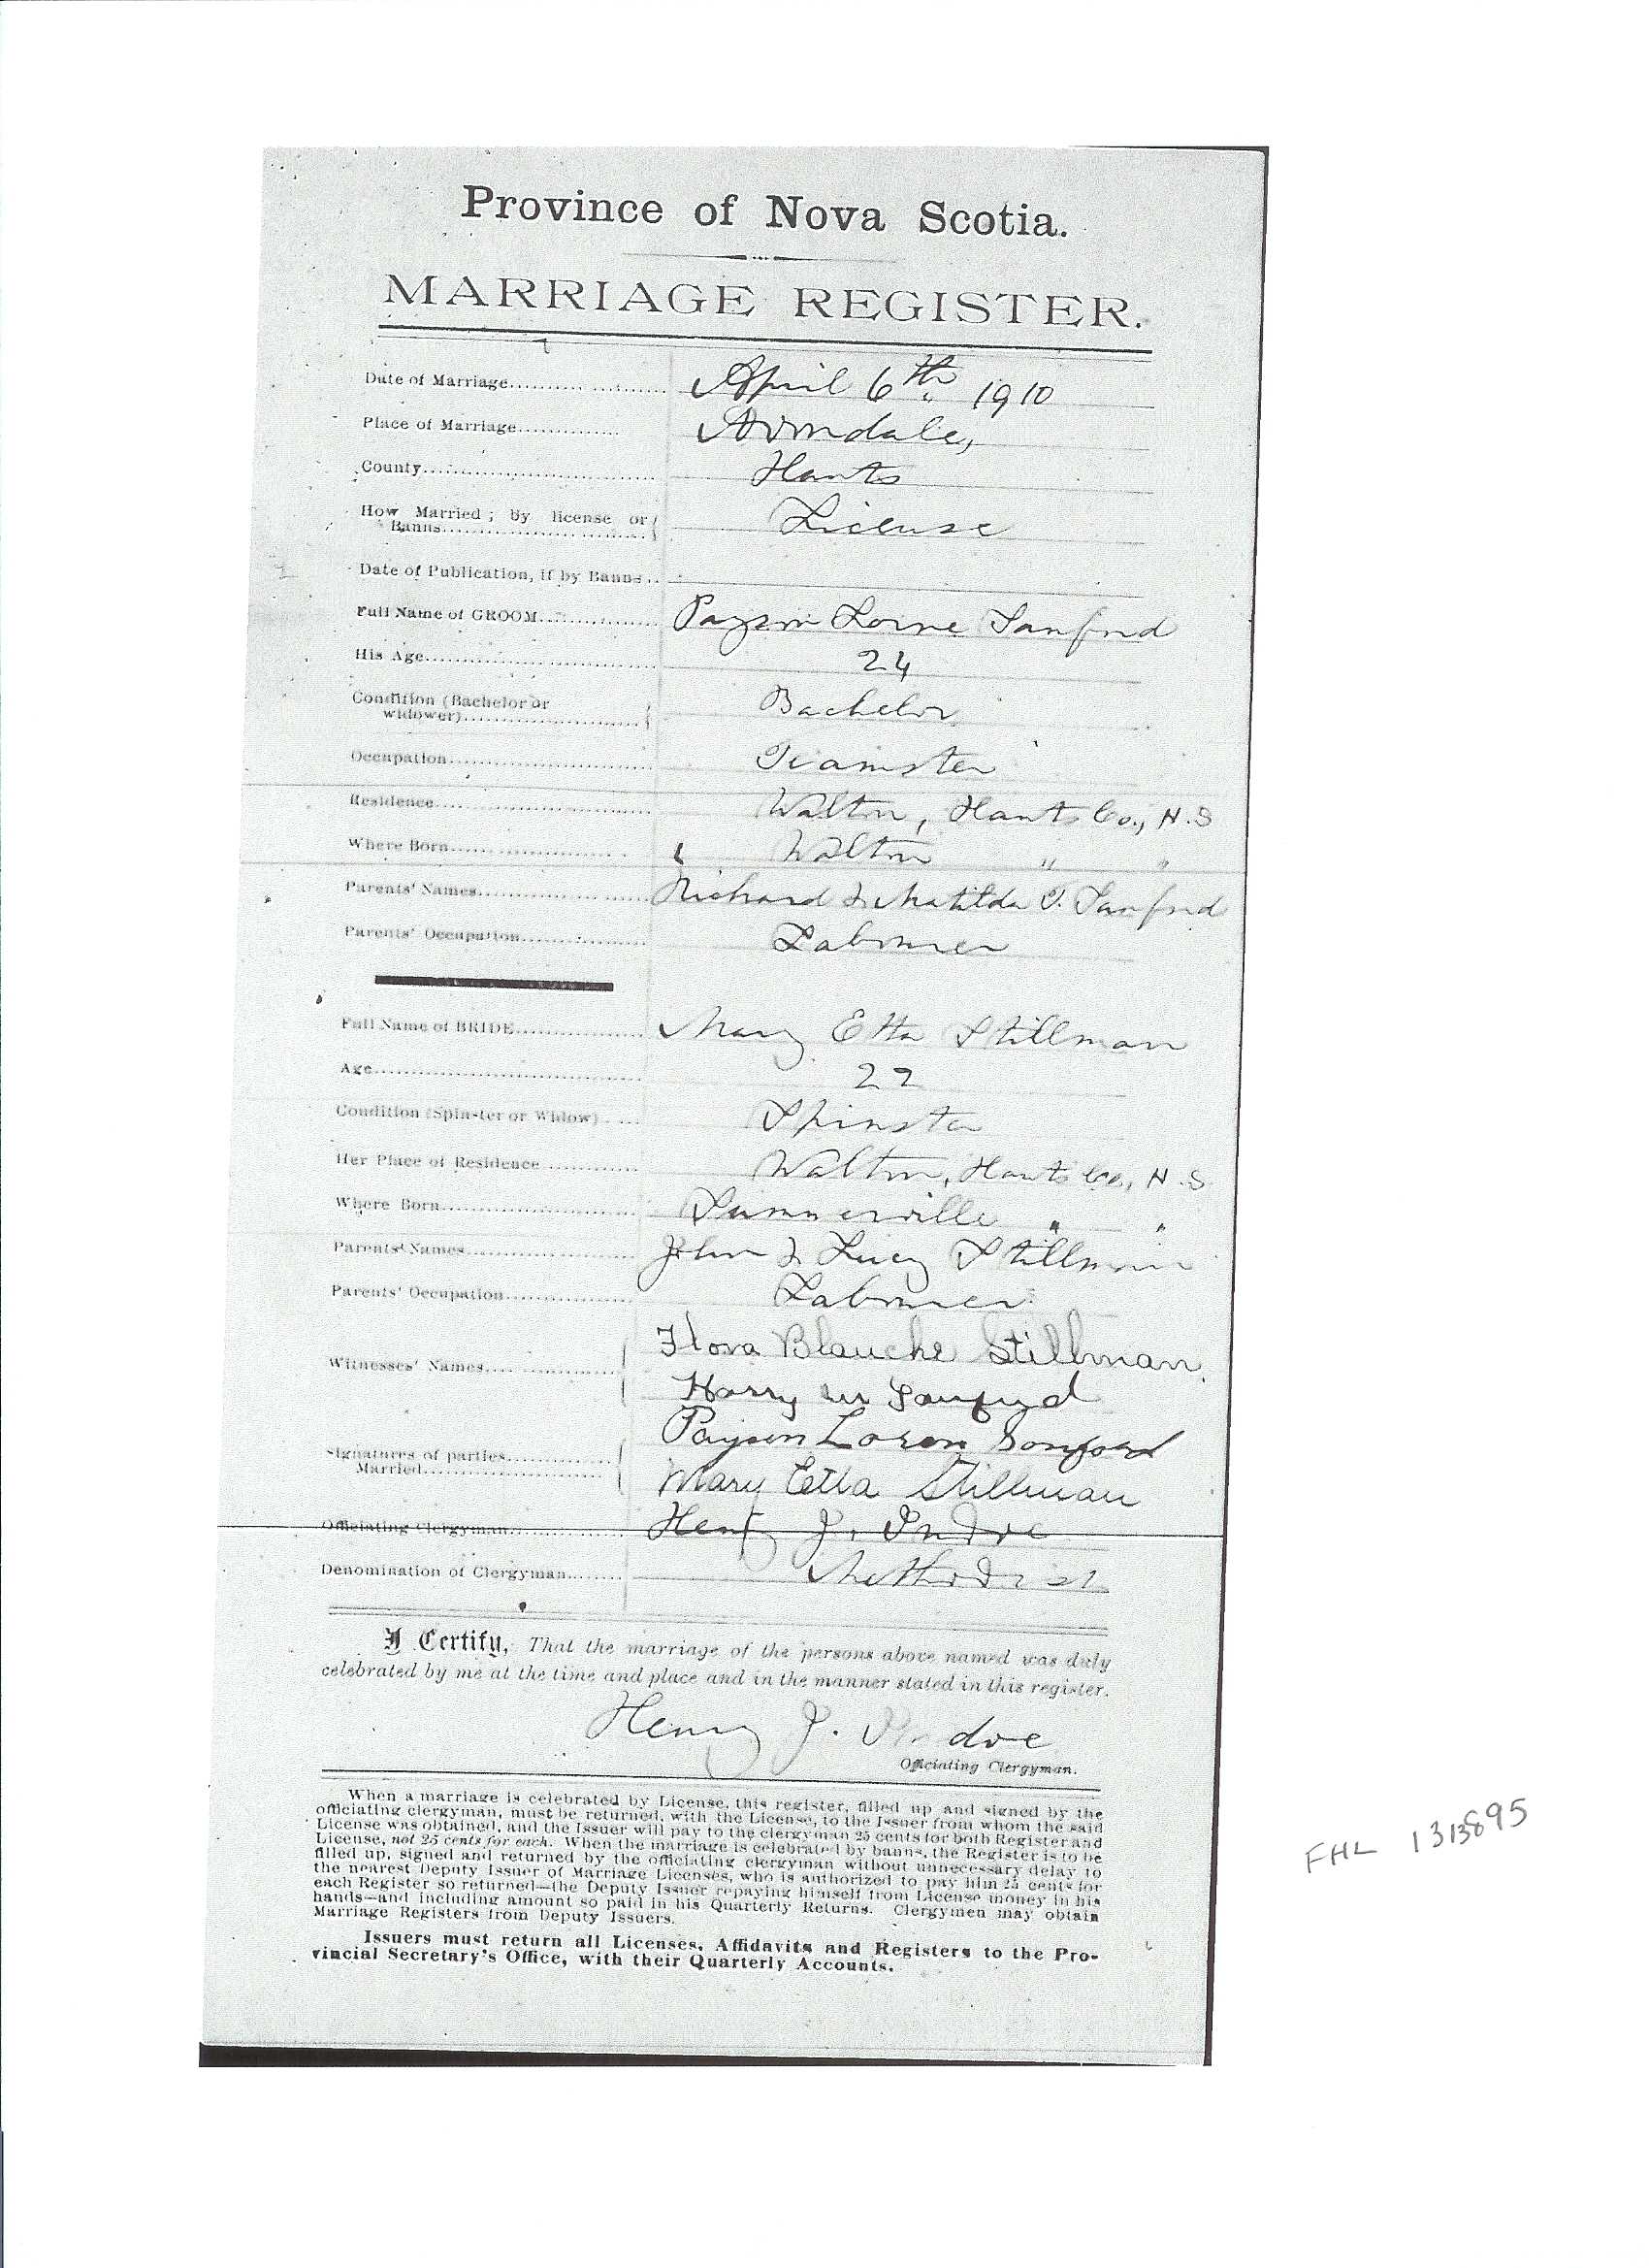 Province of Nova Scotia.
MARRIAGE REGISTER.
Date of Marriage.................... April 6th, 1910
Place of Marriage............... Avondale,
County.............................. Hants
How Married ; by license or
Banns........................... License
Date of Publication, if by Banns ..
Full Name of GROOM.................. Payson Lorne Sanford
His Age............................. 24
Condition (Bachelor or
widower)........................ Bachelor
Occupation.......................... Teamster
Residence........................... Walton, Hants Co., N.S
Where Born.......................... Walton " "
Parents' Names...................... Richard & Matilda J. Sanford
Parents' Occupation................. Labourer
Full Name of BRIDE.................. Mary Etta Stillman
Age................................. 22
Condition (Spinster or Widow).... Spinster
Her Place of Residence ............ Walton, Hants Co., N.S
Where Born.......................... Summerville " "
Parents' Names...................... John & Lucy Stillman
Parents' Occupation................. Labourer
Witnesses' Names.................... Flora Blanche Stillman
Harry W Sanford
Signatures of parties............... Payson Loren Sanford
Married......................... Mary Etta Stillman
Officiating Clergyman............... Henry J. Indoe
Denomination of Clergyman........ Methodist
I Certify, That the marriage of the persons above named was duly
celebrated by me at the time and place and in the manner stated in this register.
Henry J. Indoe
Officiating Clergyman.
When a marriage is celebrated by License, this register, filled up and signed by the
officiating clergyman, must be returned, with the License, to the Issuer from whom the said
License was obtained, and the Issuer will pay to the clergyman 25 cents for both Register and
License, not 25 cents for each. When the marriage is celebrated by banns, the Register is to be
filled up, signed and returned by the officiating clergyman without unnecessary delay to
the nearest Deputy Issuer of Marriage Licenses, who is authorized to pay him 25 cents for
each Register so returned—the Deputy Issuer repaying himself from License money in his
hands—and including amount so paid in his Quarterly Returns. Clergymen may obtain
Marriage Registers from Deputy Issuers.
Issuers must return all Licenses, Affidavits and Registers to the Pro-
vincial Secretary's Office, with their Quarterly Accounts.
FHL 1313895